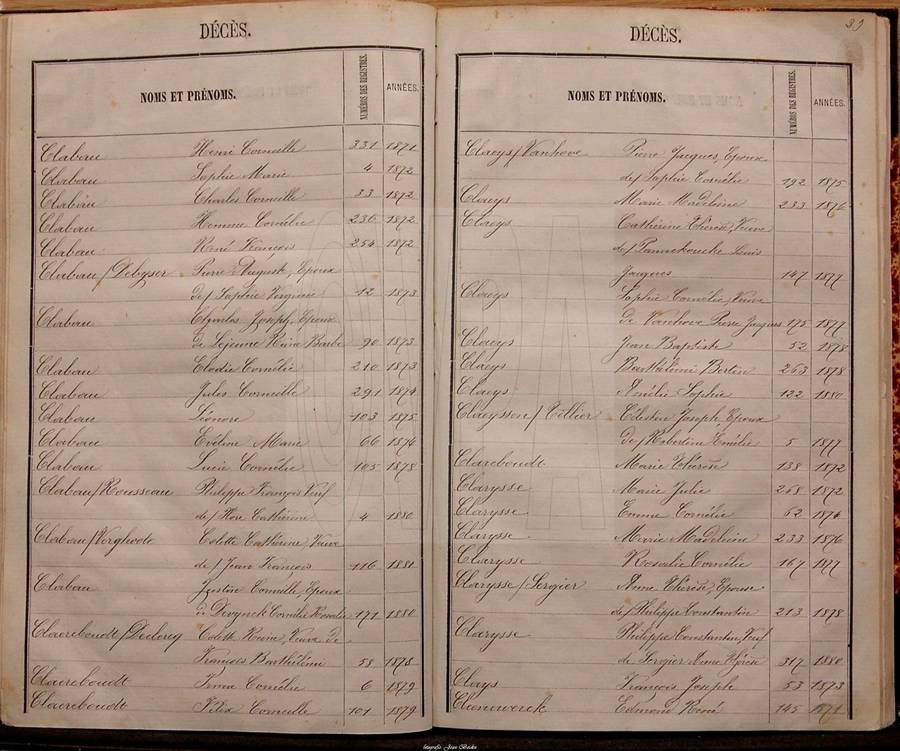 DÉCÈS.
NOMS ET PRÉNOMS. NUMÉROS DES REGISTRES. ANNÉES.
Clabau Henri Corneille 331 1871
Clabau Sophie Marie 4 1872
Clabau Charles Corneille 33 1872
Clabau Homme Cornélie 236 1872
Clabau René François 254 1872
Clabau/Debyser Pierre Auguste, Epoux
de/ Sophie Virginie 12 1873
Clabau Charles Joseph, Epoux
de Lejeune Reine Barbe 90 1873
Clabau Elodie Cornélie 210 1873
Clabau Jules Corneille 291 1874
Clabau Léonore 103 1875
Clabau Evélina Marie 66 1876
Clabau Lucie Cornélie 105 1878
Clabau/Rousseau Philippe François Veuf
de/ Catherine 4 1880
Clabau/ Colette Catherine, Veuve
de/ Jean François 116 1881
Clabau Justin Corneille, Epoux
de Devynck Cornélie Rosalie 171 1880
Claereboudt/Declercq Colette Reine, Veuve de
François Barthélémi 58 1878
Claereboudt Irma Cornélie 6 1879
Claereboudt Félix Corneille 101 1879
39
DÉCÈS.
NOMS ET PRÉNOMS. NUMÉROS DES REGISTRES. ANNÉES.
Claeys/Vanhove Pierre Jacques, Epoux
de/ Sophie Cornélie 192 1875
Claeys Marie Madeleine 233 1876
Claeys Catherine Thérèse, Veuve
de/ Pannekoucke Louis
Jacques 147 1877
Claeys Sophie Cornélie, Veuve
de Vanhove Pierre Jacques 175 1877
Claeys Jean Baptiste 52 1878
Claeys Barthélémi Bertin 263 1878
Claeys Amélie Sophie 122 1880
Claeysson/Tillier Célestin Joseph, Epoux
de/ Robertine Emélie 5 1877
Clareboudt Marie Thérèse 138 1872
Clarysse Marie Julie 268 1872
Clarysse Emma Cornélie 62 1874
Clarysse Marie Madeleine 233 1876
Clarysse Rosalie Cornélie 167 1877
Clarysse/Sergier Anne Thérèse, Epouse
de/ Philippe Constantin 213 1878
Clarysse Philippe Constantin, Veuf
de Sergier Anne Thérèse 317 1880
Clays François Joseph 53 1873
Edmond René 145 1871
fotografie Jean Bockx